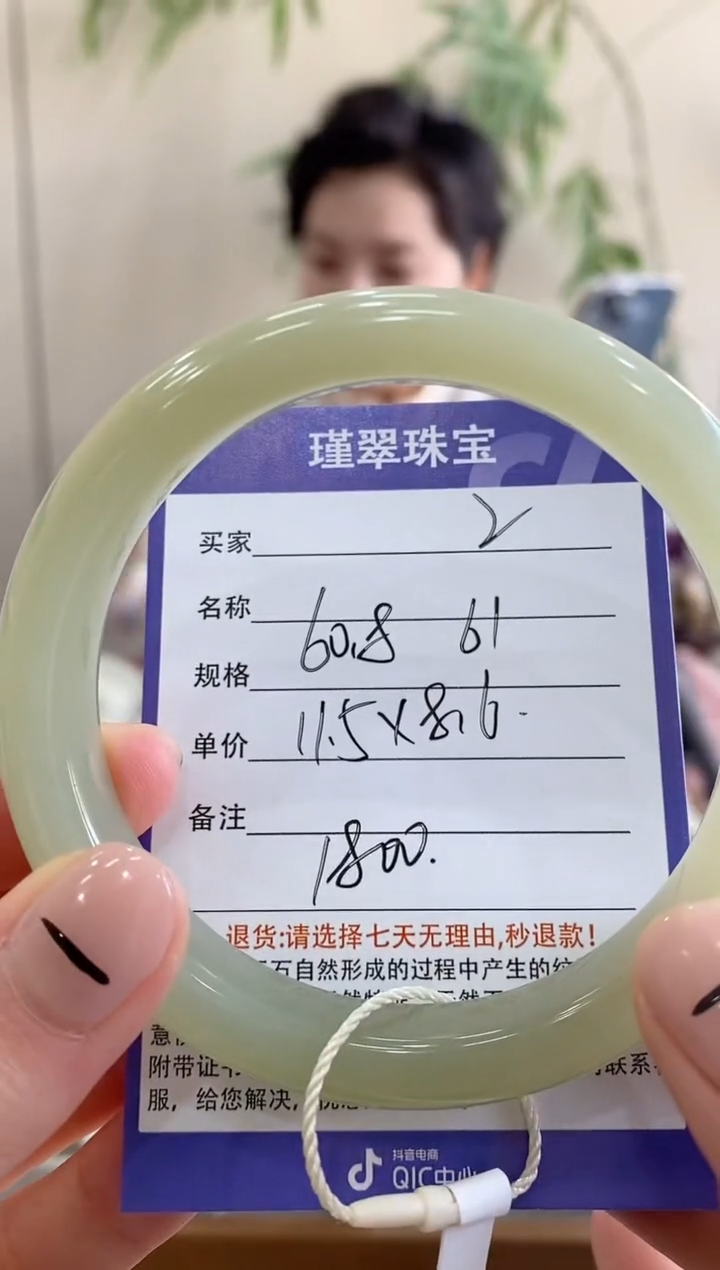 瑾翠珠宝
买家 2
名称 60.8 61
规格 11.5×8.6.
单价
备注 1800.
退货:请选择七天无理由,秒退款!
石自然形成的过程中产生的纹
意
附带证书 联系
服，给您解决，
抖音电商
QIC中心